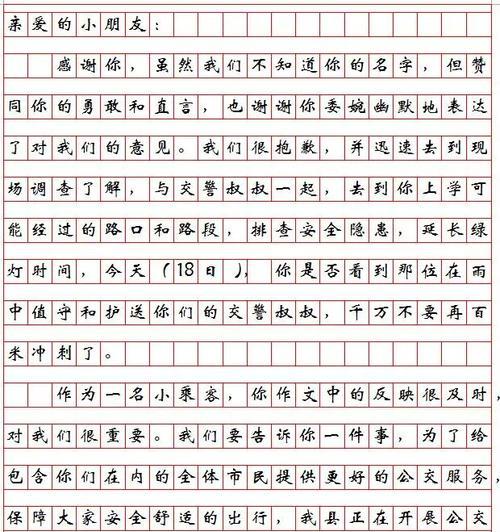 亲爱的小朋友：
感谢你，虽然我们不知道你的名字，但赞
同你的勇敢和直言，也谢谢你委婉幽默地表达
了对我们的意见。我们很抱歉，并迅速去到现
场调查了解，与交警叔叔一起，去到你上学可
能经过的路口和路段，排查安全隐患，延长绿
灯时间，今天（18日），你是否看到那位在雨
中值守和护送你们的交警叔叔，千万不要再百
米冲刺了。
作为一名小乘客，你作文中的反映很及时，
对我们很重要。我们要告诉你一件事，为了给
包含你们在内的全体市民提供更好的公交服务，
保障大家安全舒适的出行，我县正在开展公交